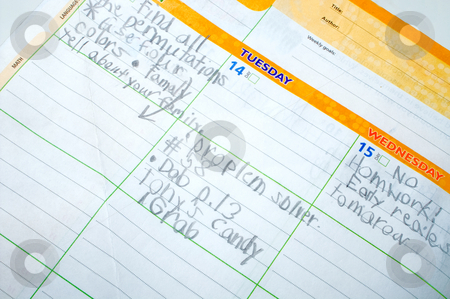 LANGUAGE
MATH
Title:
Author:
Weekly goals:
Find all
*the permutations
*Use four
colors. • Family
Tell about your family
TUESDAY
14
Problem solver.
#58
• Dab p.13
Tony's Candy
1Grab
WEDNESDAY
15
No
Homwork!
Early realess
tomarow